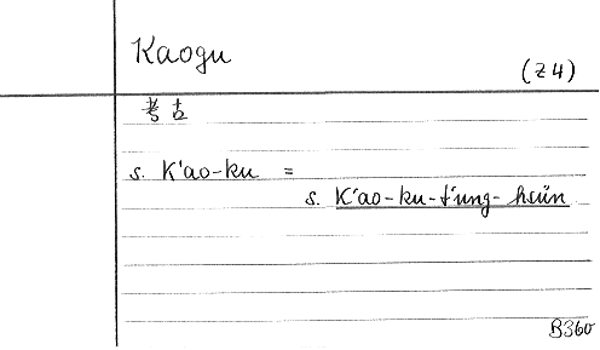 Kaogu
(Z4)
考古
s. K'ao-ku =
s. K'ao-ku-t'ung-hsün
B360